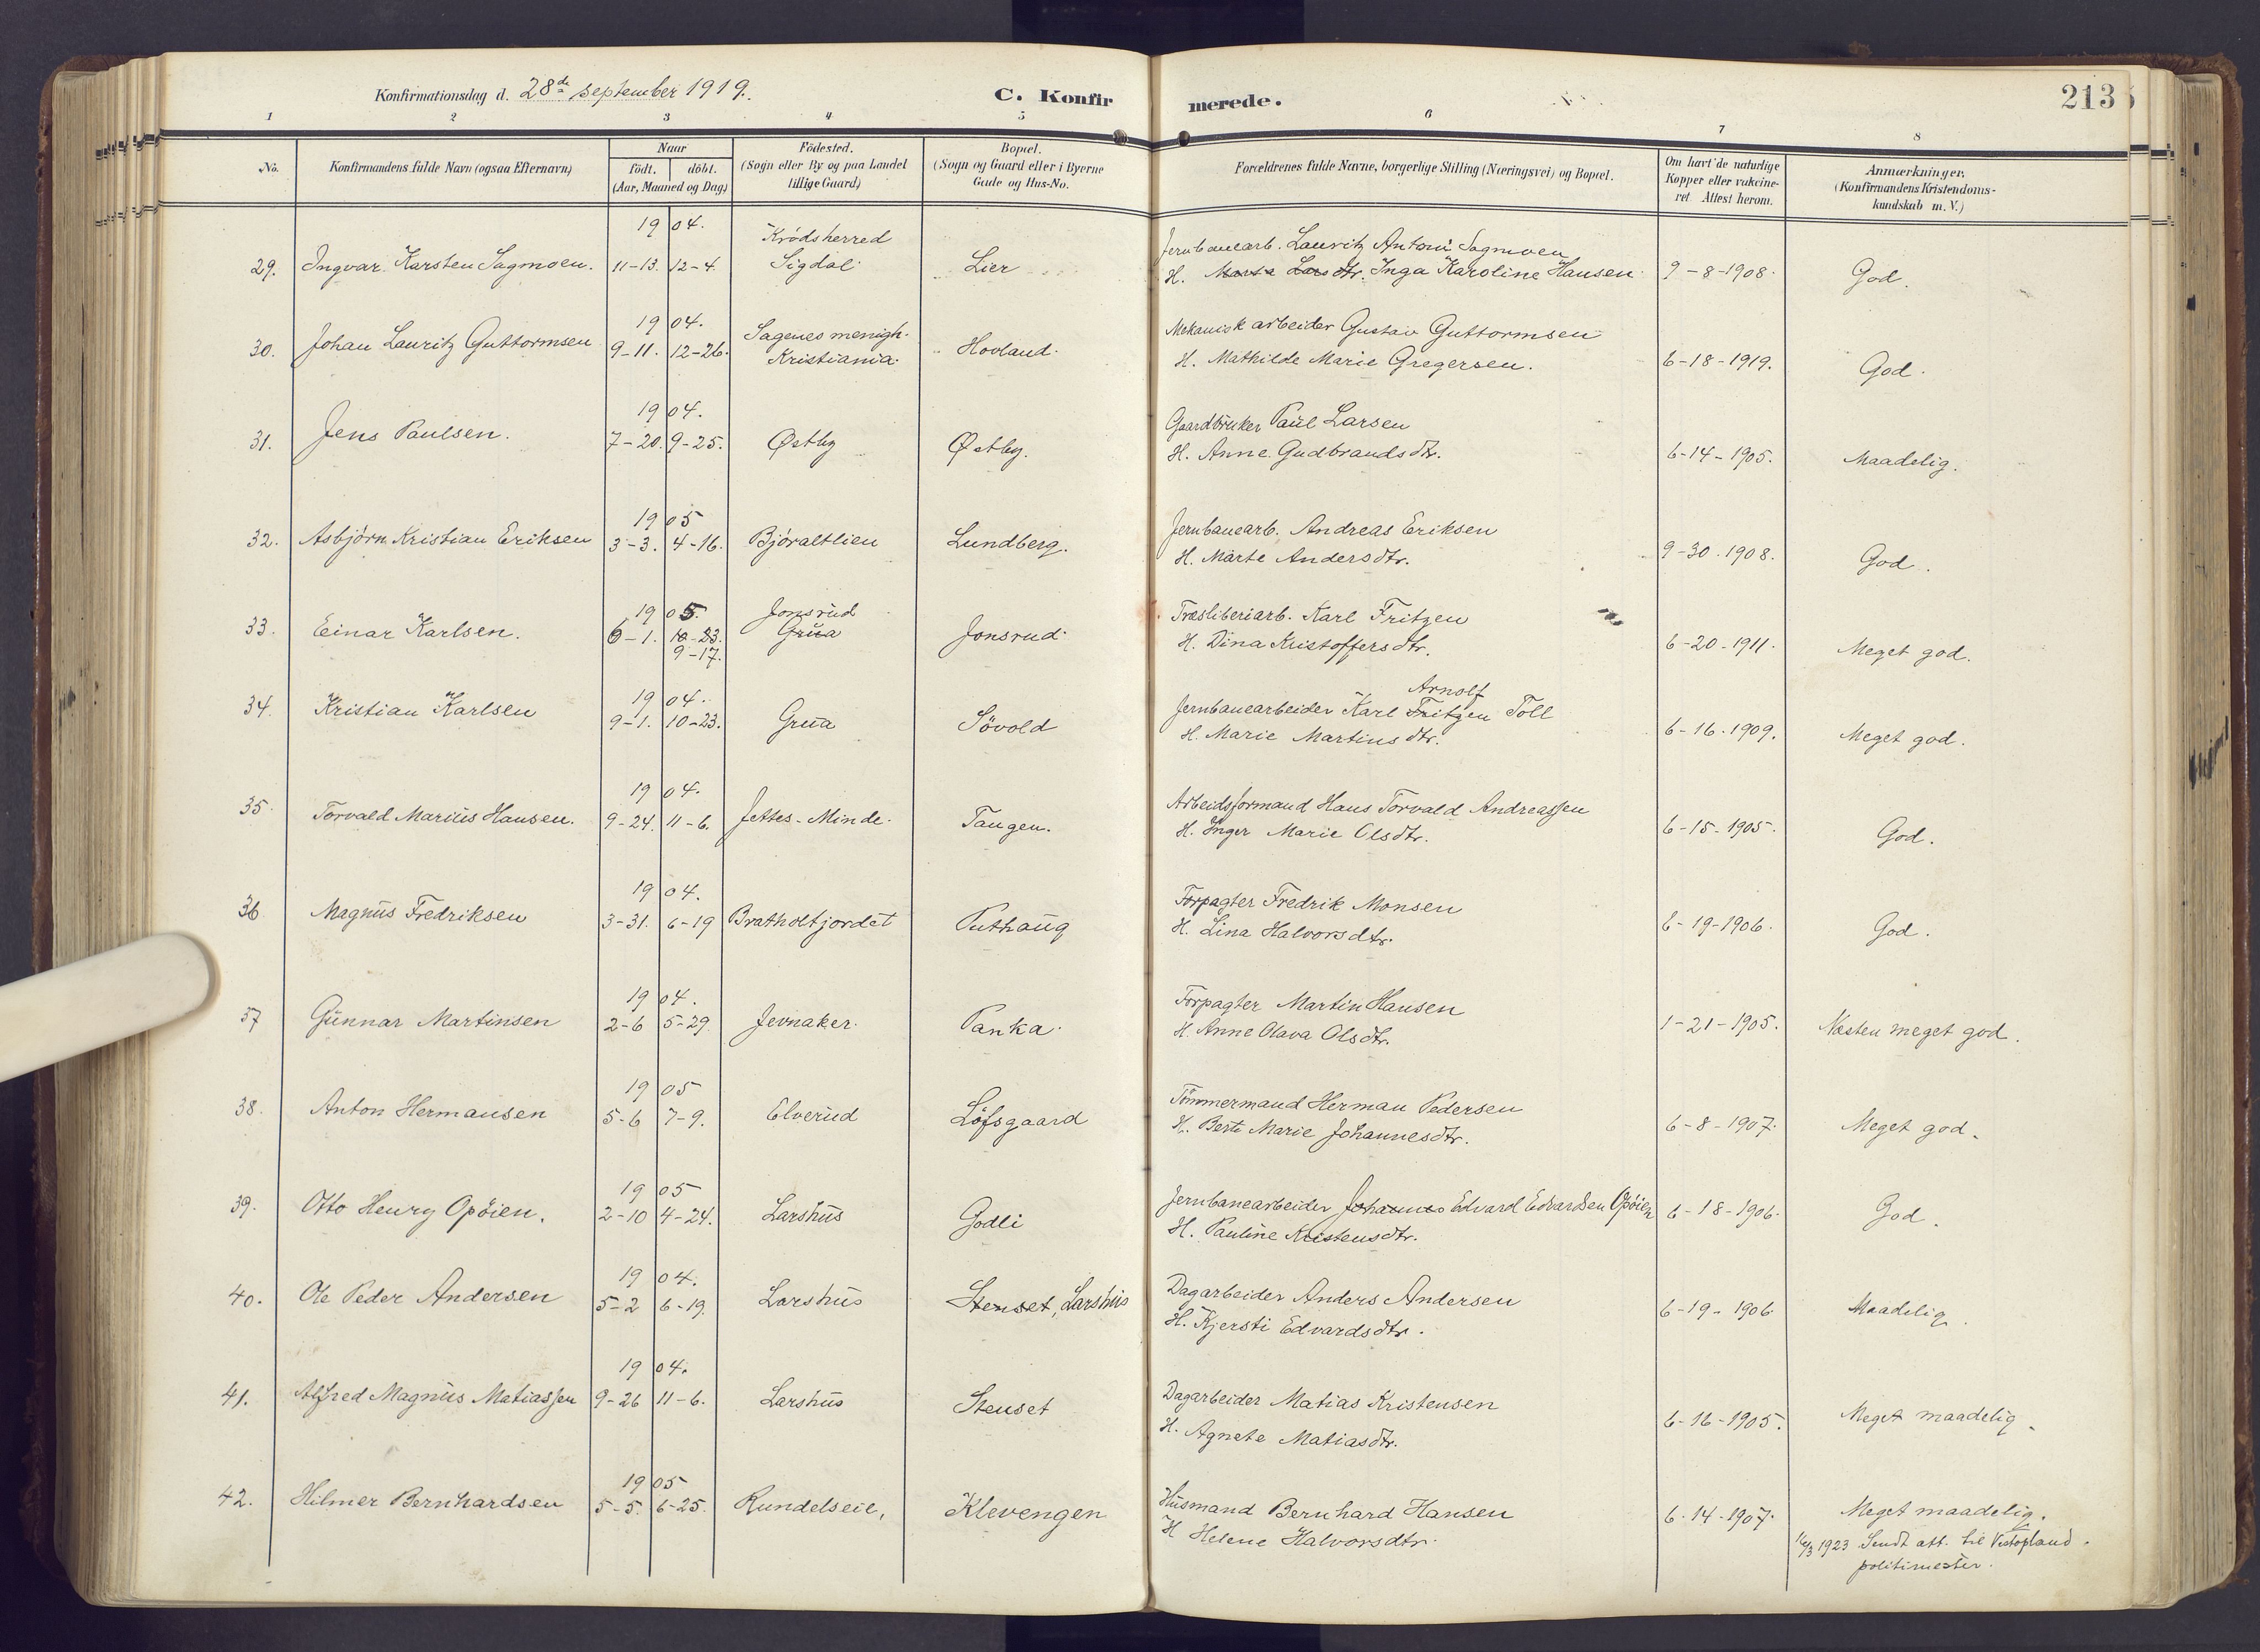 Konfirmationsdag d. 28de september 1919. C. Konfirmerede. 213
1 2 3 4 5 6 7 8
No. Konfirmandens fulde Navn (ogsaa Efternavn) Naar födt. döbt. (Aar, Maaned og Dag) Födested. (Sogn eller By og paa Landet tillige Gaard) Bopæl. (Sogn og Gaard eller i Byerne Gade og Hus-No. Forældrenes fulde Navne, borgerlige Stilling (Næringsvei) og Bopæl. Om havt de naturlige Kopper eller vakcineret. Attest herom. Anmærkninger. (Konfirmandens Kristendomskundskab m. V.)
1904. Krödsherred Jernbanearb. Lauritz Anton Sagmoen
29. Ingvar Karsten Sagmoen. 11-13. 12-4 Sigdal Lier H. Marte Lars dtr. Inga Karoline Hansen 9-8-1908. God.
1904. Sagenes menigh. Mekanisk arbeider Gustav Guttormsen
30. Johan Lauritz Guttormsen 9-11. 12-26. Kristiania. Hovland. H. Mathilde Marie Gregersen. 6-18-1919. God.
1904. Gaardbruker Paul Larsen
31. Jens Paulsen. 7-20. 9-25. Østby Østby. H. Anne Gudbrandsdtr. 6-14-1905. Maadelig.
1905 Jernbanearb. Andreas Eriksen
32. Asbjörn Kristian Eriksen 3-3. 4-16. Björaltlien Lundberg. H. Marte Andersdtr. 9-30-1908. God.
1905. Jonsrud Træsliberiarb. Karl Fritzen
33. Einar Karlsen. 6-1. 10-23. Grua Jonsrud H. Dina Kristoffersdtr. 6-20-1911. Meget god.
9-17.
1904. Arnolf
34. Kristian Karlsen 9-1. 10-23. Grua Sövold Jernbanearbeider Karl Fritzen Toll 6-16-1909. Meget god.
H. Marie Martinsdtr.
1904. Arbeidsformand Hans Torvald Andreassen
35. Torvald Marius Hansen. 9-24. 11-6. Jettes-Minde. Tangen. H. Inger Marie Olsdtr. 6-15-1905. God.
1904. Forpagter Fredrik Monsen
36 Magnus Fredriksen 3-31. 6-19 Bratholtjordet Puthaug H. Lina Halvorsdtr. 6-19-1906. God.
1904. Forpagter Martin Hansen
37 Gunnar Martinsen 2-6 5-29. Jevnaker. Panka. H. Anne Olava Olsdtr. 1-21-1905. Næsten meget god.
1905 Tömmermand Herman Pedersen
38. Anton Hermansen 5-6 7-9. Elverud Löfsgaard H. Berte Marie Johannesdtr. 6-8-1907. Meget god.
1905 Jernbanearbeider Johannes Edvard Edvardsen Opöien
39. Otto Henry Opöien. 2-10 4-24. Larshus Godli H. Pauline Kristensdtr. 6-18-1906. God.
1904. Dagarbeider Anders Andersen
40. Ole Peder Andersen 5-2 6-19. Larshus Stenset, Larshus H. Kjersti Edvardsdtr. 6-19-1906 Maadelig.
1904. Dagarbeider Matias Kristensen
41. Alfred Magnus Matiassen 9-26 11-6. Larshus Stenset H. Agnete Matiasdtr. 6-16-1905. Meget maadelig.
1905 Husmand Bernhard Hansen
42. Hilmer Bernhardsen 5-5. 6-25. Rundelseie, Klevengen H Helene Halvorsdtr. 6-14-1907. Meget maadelig.
16/3 1923 Sendt att. til Vestopland
politimester.